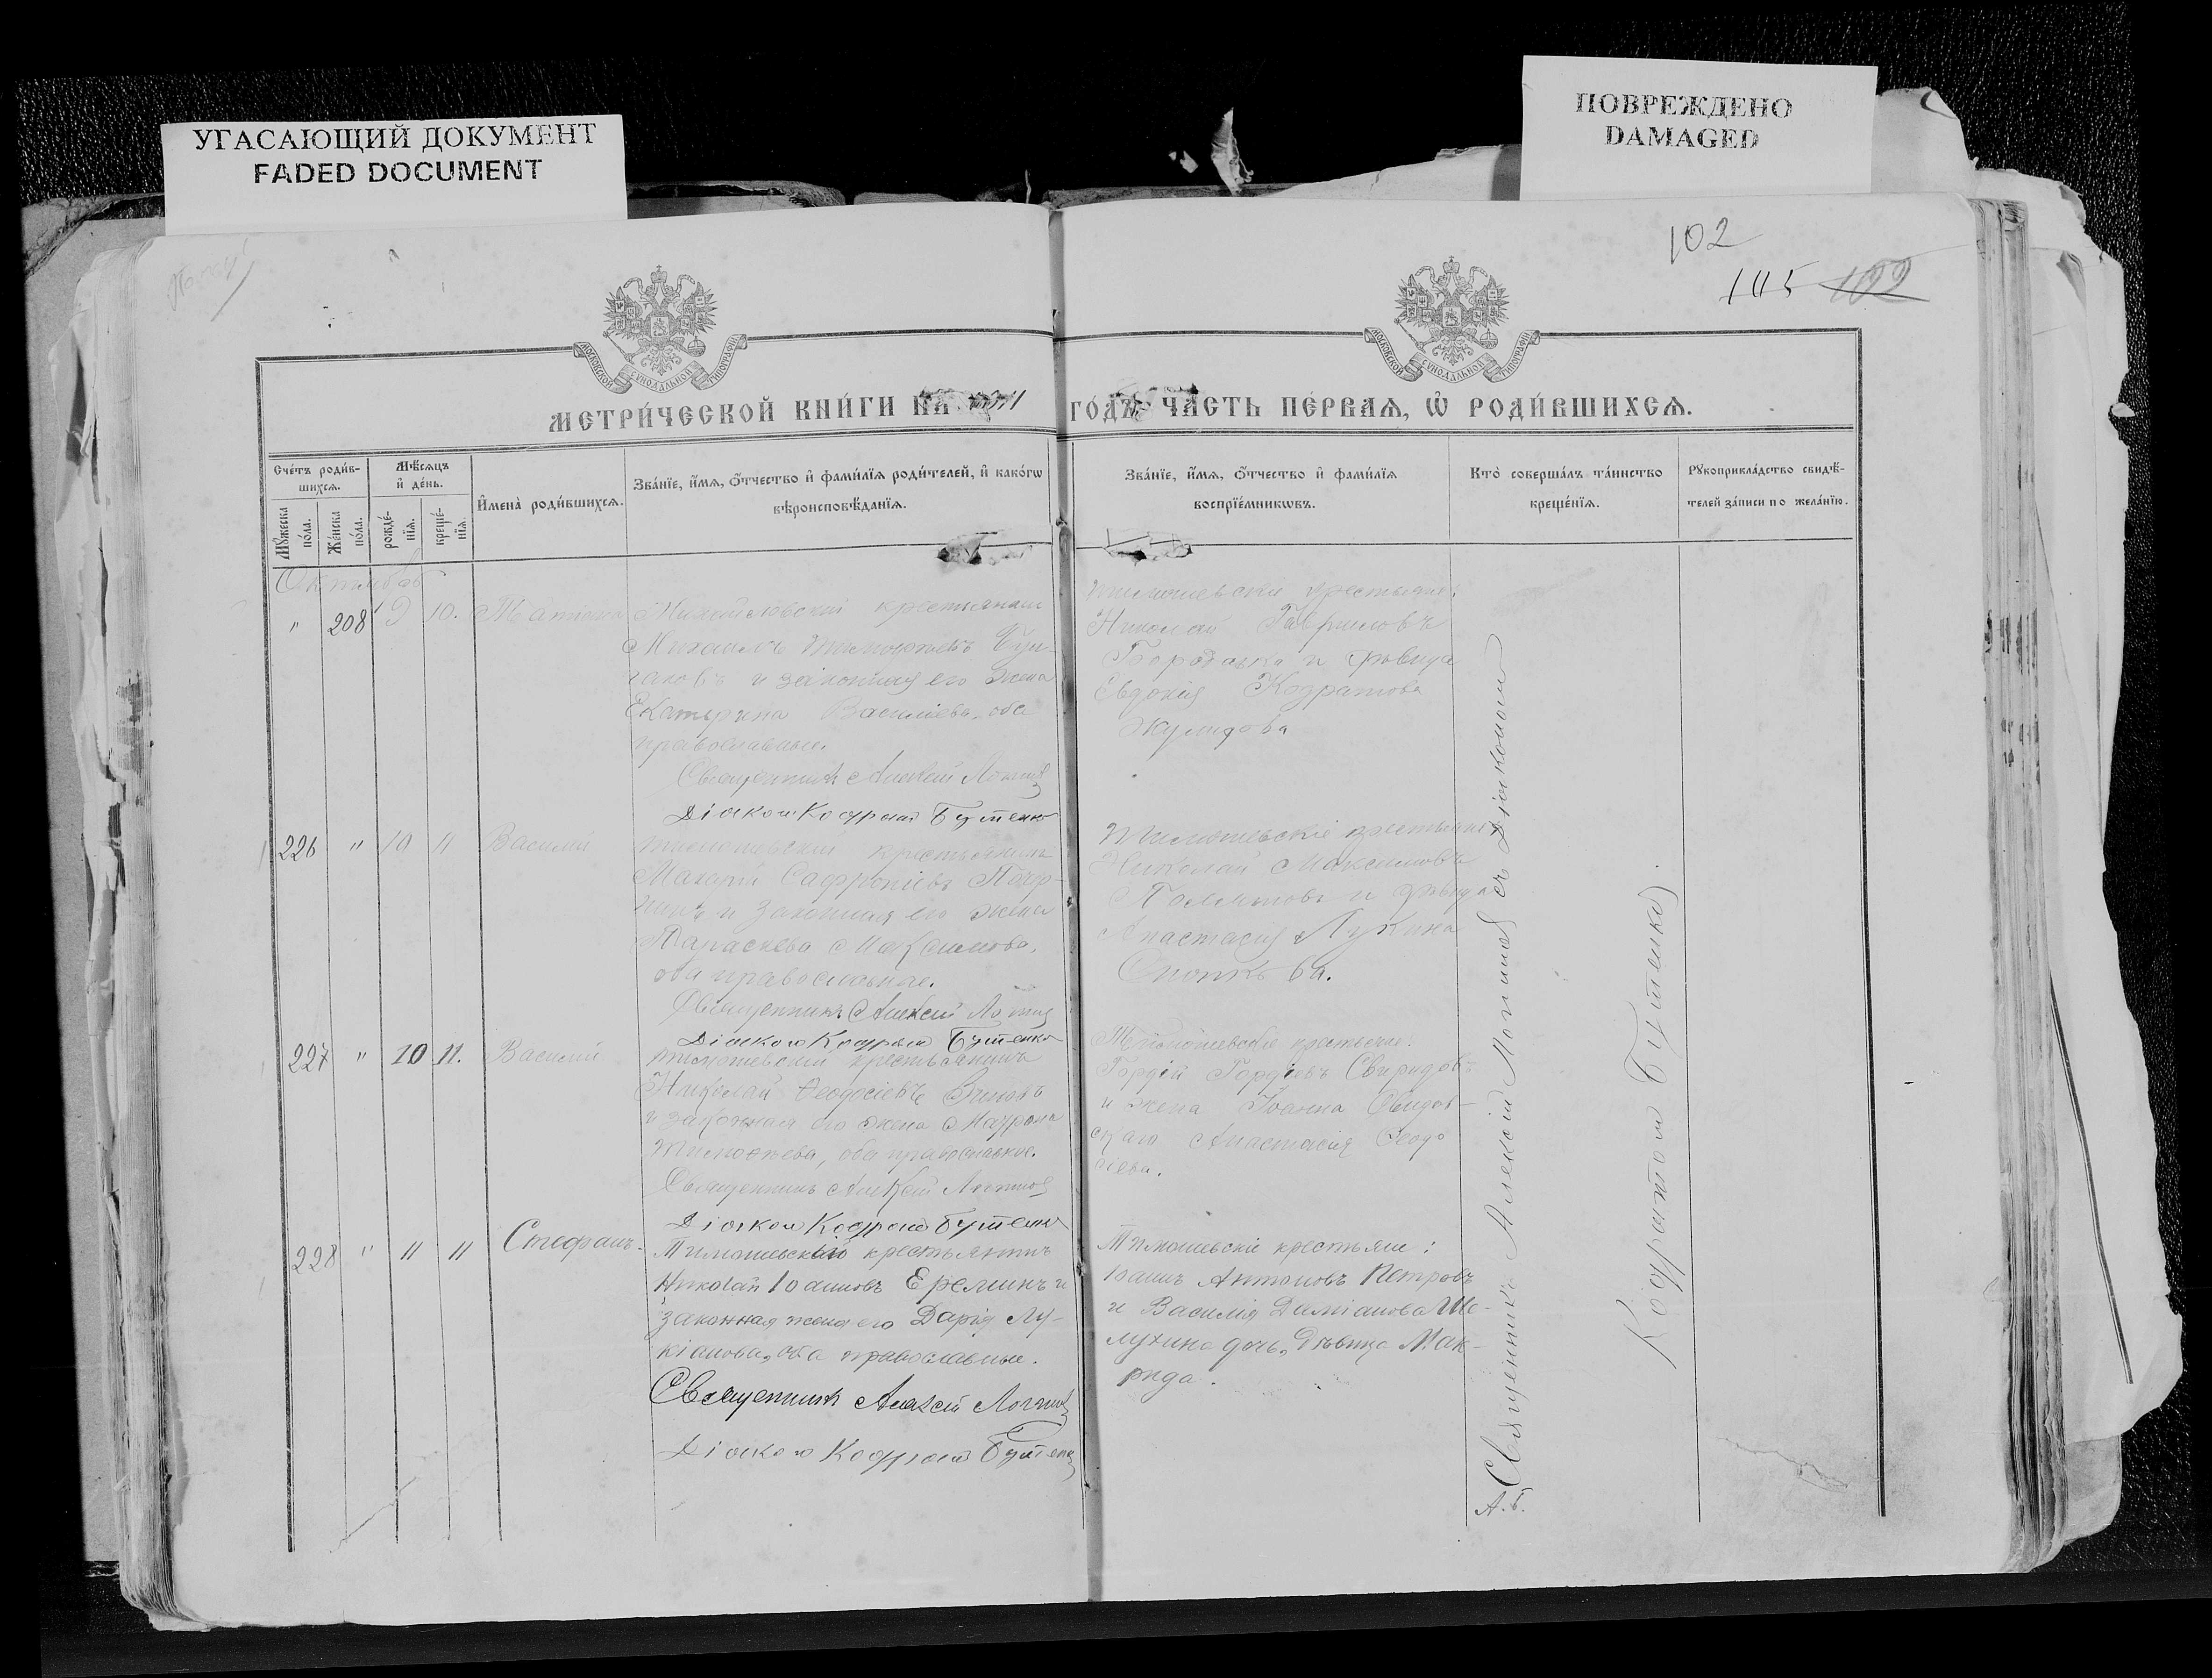 УГАСАЮЩИЙ ДОКУМЕНТ
FADED DOCUMENT
ПОВРЕЖДЕНО
DAMAGED
102
115 102
МОСКОВСКОЙ СУНОДАЛЬНОЙ ТИПОГРАФІИ
МОСКОВСКОЙ СУНОДАЛЬНОЙ ТИПОГРАФІИ
МЕТРИ́ЧЕСКОЙ КНИ́ГИ НА 1911 ГО́ДЪ ЧА́СТЬ ПЕ́РВАЯ, Ѽ РОДИ́ВШИХСЯ.
Сче́тъ роди́в-
шихся.
Мꙋжеска по́ла.
Же́нска по́ла.
Мѣ́сяцъ
и҆ де́нь.
рожде́-
нїя.
креще́-
нїя.
И҆мена̀ роди́вшихся.
Зва́нїе, и҆́мя, ѻ҆́тчество и҆ фами́лїя роди́телей, и҆ како́гѡ
вѣроисповѣ́данїя.
Зва́нїе, и҆́мя, ѻ҆́тчество и҆ фами́лїя
воспрїе́мникѡвъ.
Кто̀ соверша́лъ та́инство
креще́нїя.
Рꙋкоприкла́дство свидѣ́-
телей за́писи по жела́нїю.
Октябрь
" 208 9 10. Татіана
Михайловскій крестьянинъ
Михаилъ Тимофеевъ
и законная его жена
Екатерина Васильева, оба
православные.
Священникъ Алексій Логинов
Діакон Кодрат Бутенко
Тимошевскіе крестьяне:
Николай Гавриловъ
Бородавка и дѣвица
Евдокія Кодратова
Жулидова
226 " 10 11 Василій
Тимошевскій крестьянинъ
Макарій Сафроніевъ
и законная его жена
Параскева Максимова,
оба православные.
Священникъ Алексій Логинов
Діакон Кодрат Бутенко
Тимошевскіе крестьяне:
Николай Максимовъ
и дѣвица
Анастасія Лукина
227 " 10 11. Василій
Тимошевскій крестьянинъ
Николай Ѳеодосіевъ
и законная его жена Матрона
Тимоѳеева, оба православные.
Священникъ Алексій Логинов
Діакон Кодрат Бутенко
Тимошевскіе крестьяне:
Гордій Гордіевъ Свиридовъ
и жена Іоанна Свидов-
скаго Анастасія Ѳеодо
сіева.
228 " 11 11 Стефанъ.
Тимошевскій крестьянинъ
Николай Іоанновъ Ереминъ и
законная жена его Дарія Лу-
кіанова, оба православные.
Священникъ Алексій Логинов
Діакон Кодрат Бутенко
Тимошевскіе крестьяне:
Іоаннъ Антоновъ Петровъ
и Василія Даміанова Ше-
лухина дочь, дѣвица Мак-
рида.
Священникъ Алексій Логинов съ діакономъ
Кодратом Бутенко.
А. Б.